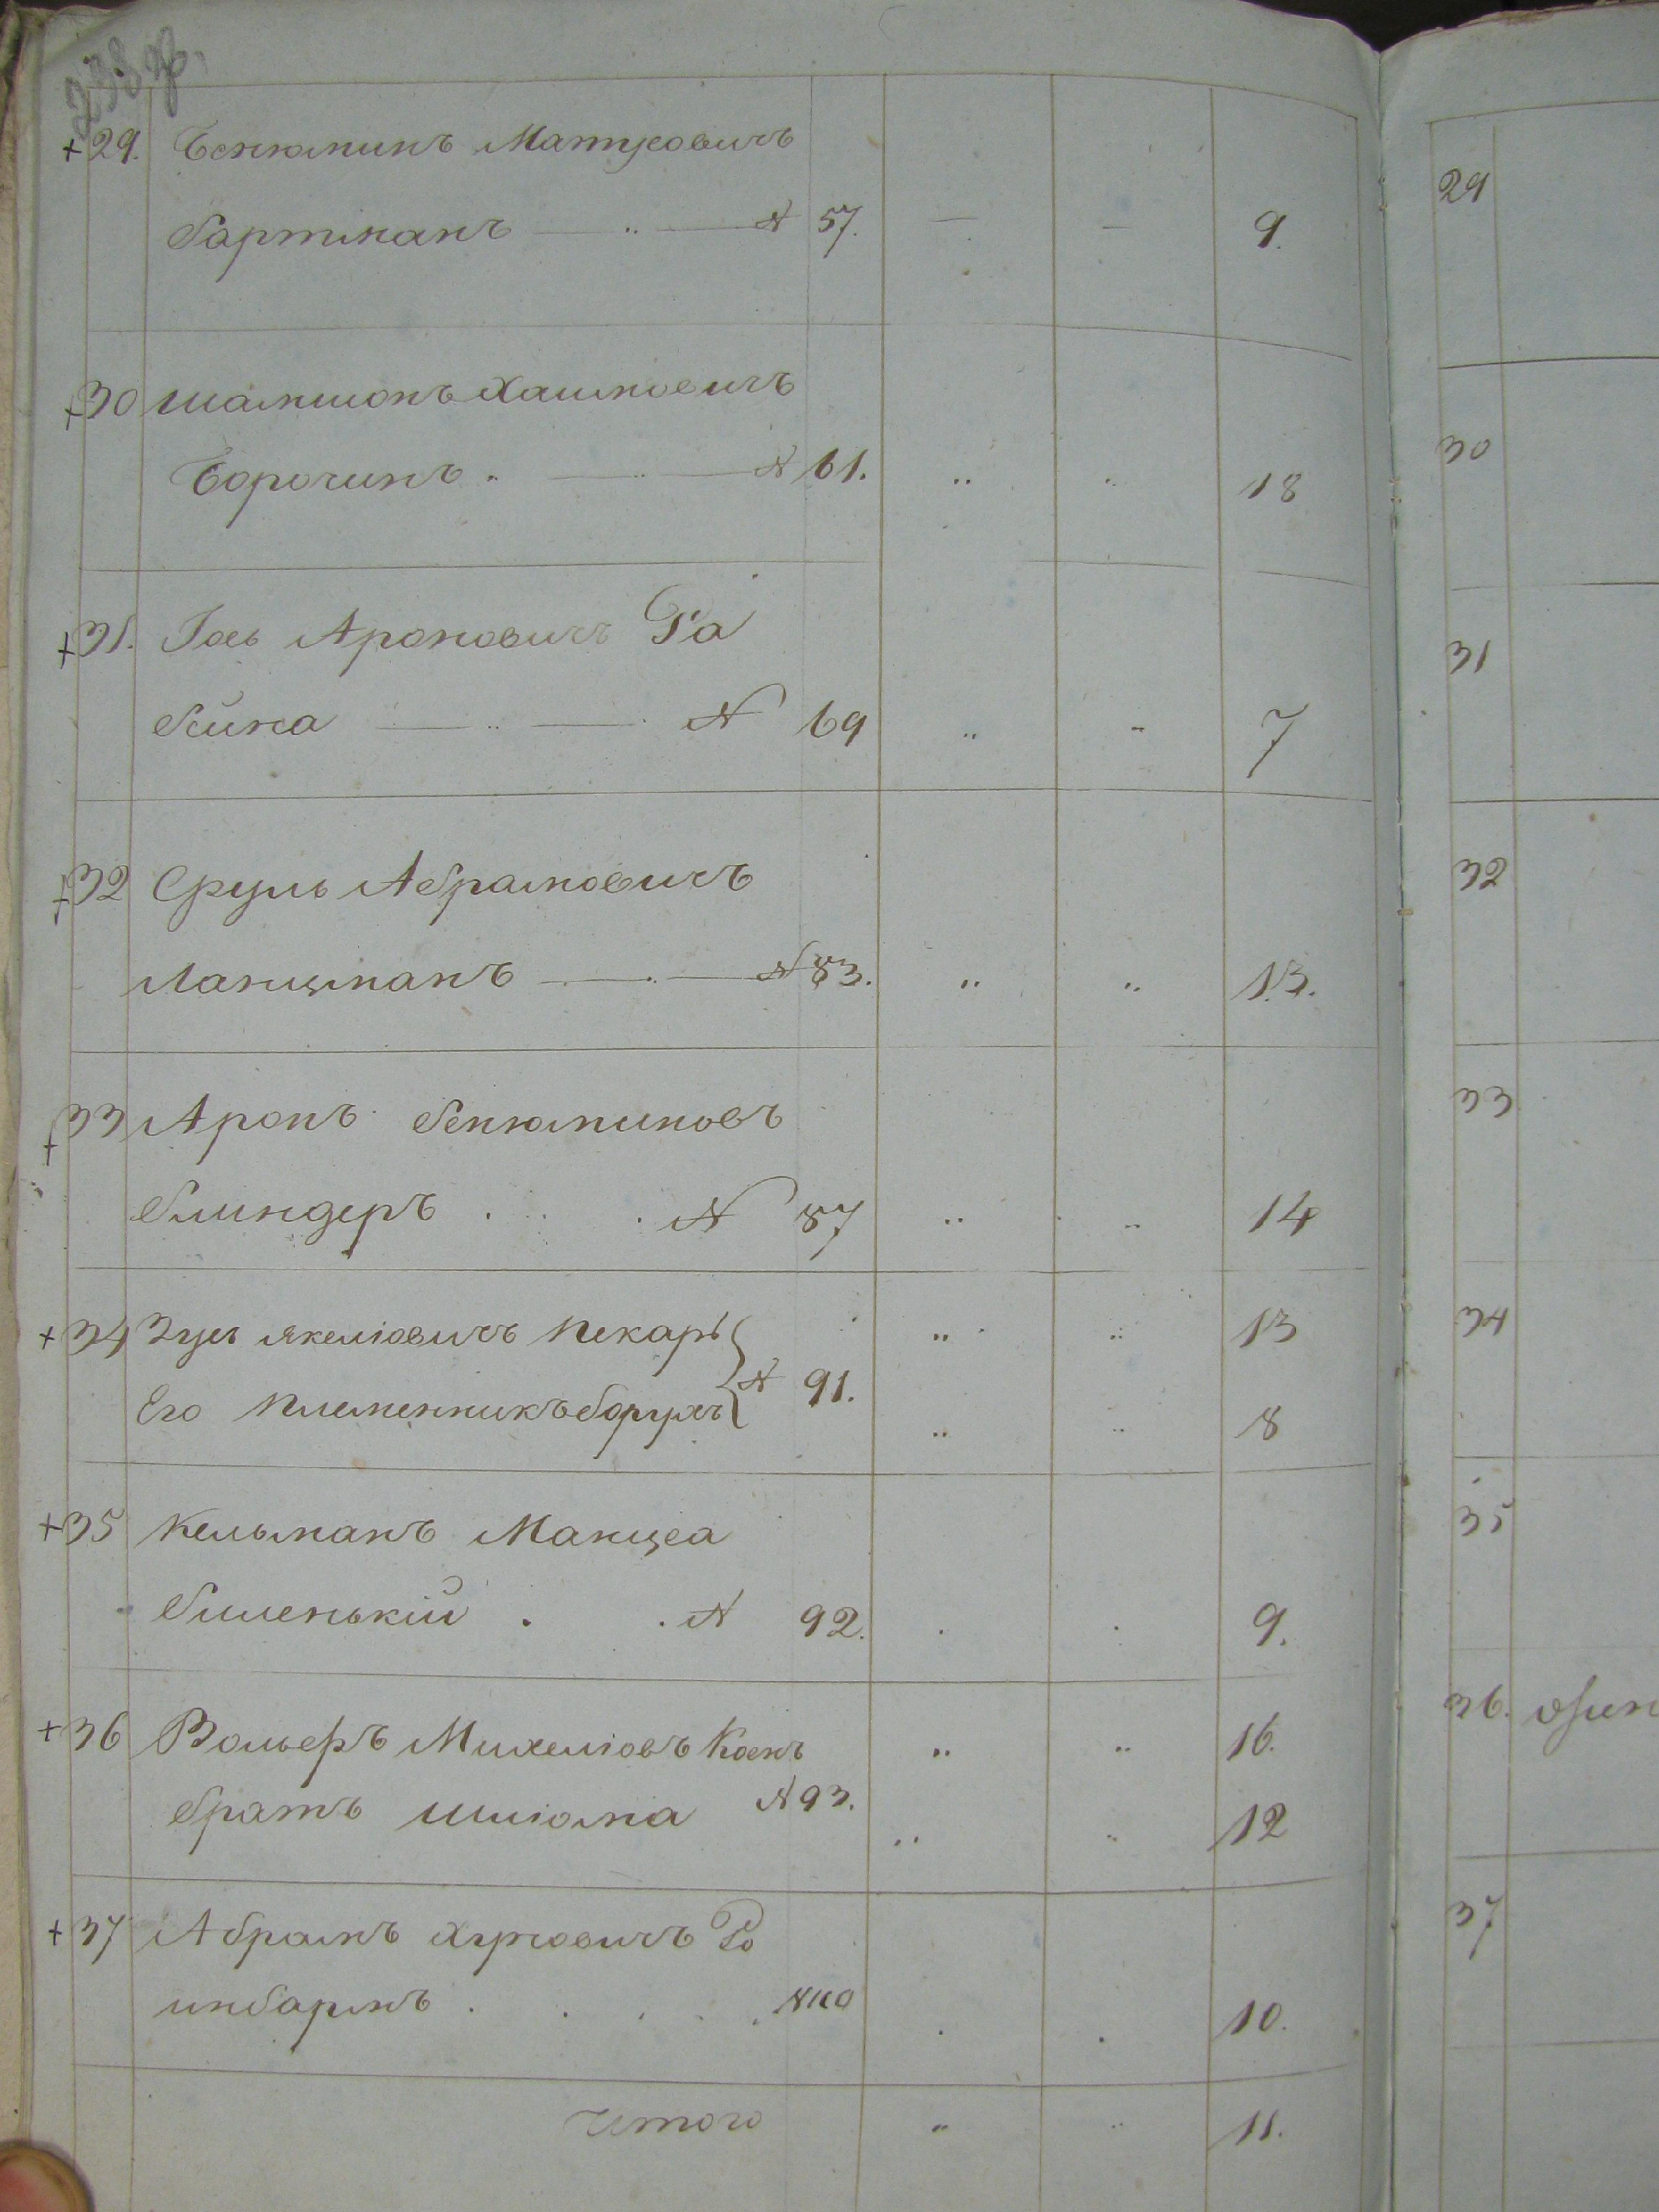 +29. Бенюминъ Матусовичъ
бартманъ — .. — N 57. — — 9.
+30 Шамшонъ Хаимовичъ
Борочинъ . — .. — N 61. .. .. 18
+31. Іось Ароновичъ Ра
бина — .. — N 69 .. .. 7
+32 Сруль Абрамовичъ
Ланцманъ — . — N 83. .. .. 13.
+33 Аронъ бенюминовъ
блиндеръ . .. . N 87 .. .. 14
+34 Зусь Якеліовичъ Пекарь .. .. 13
Его племенникъ борухъ N 91. .. .. 8
+35 Кельманъ
биленькій . . N 92. . . 9.
+36 Вольфъ Михеліовъ Коенъ .. .. 16.
братъ Шліома N 93. .. .. 12
+37 Абрамъ Ро
инбармъ . . . . . N 110 . . 10.
Итого .. .. 11.
29
30
31
32
33
34
35
36.
37